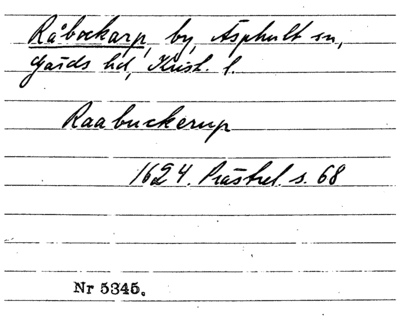 Råbockarp, by, Äsphult sn,
Gärds hd, Krist. l.
Raabuckerup
1624. Prästrel s. 68
Nr 5345.